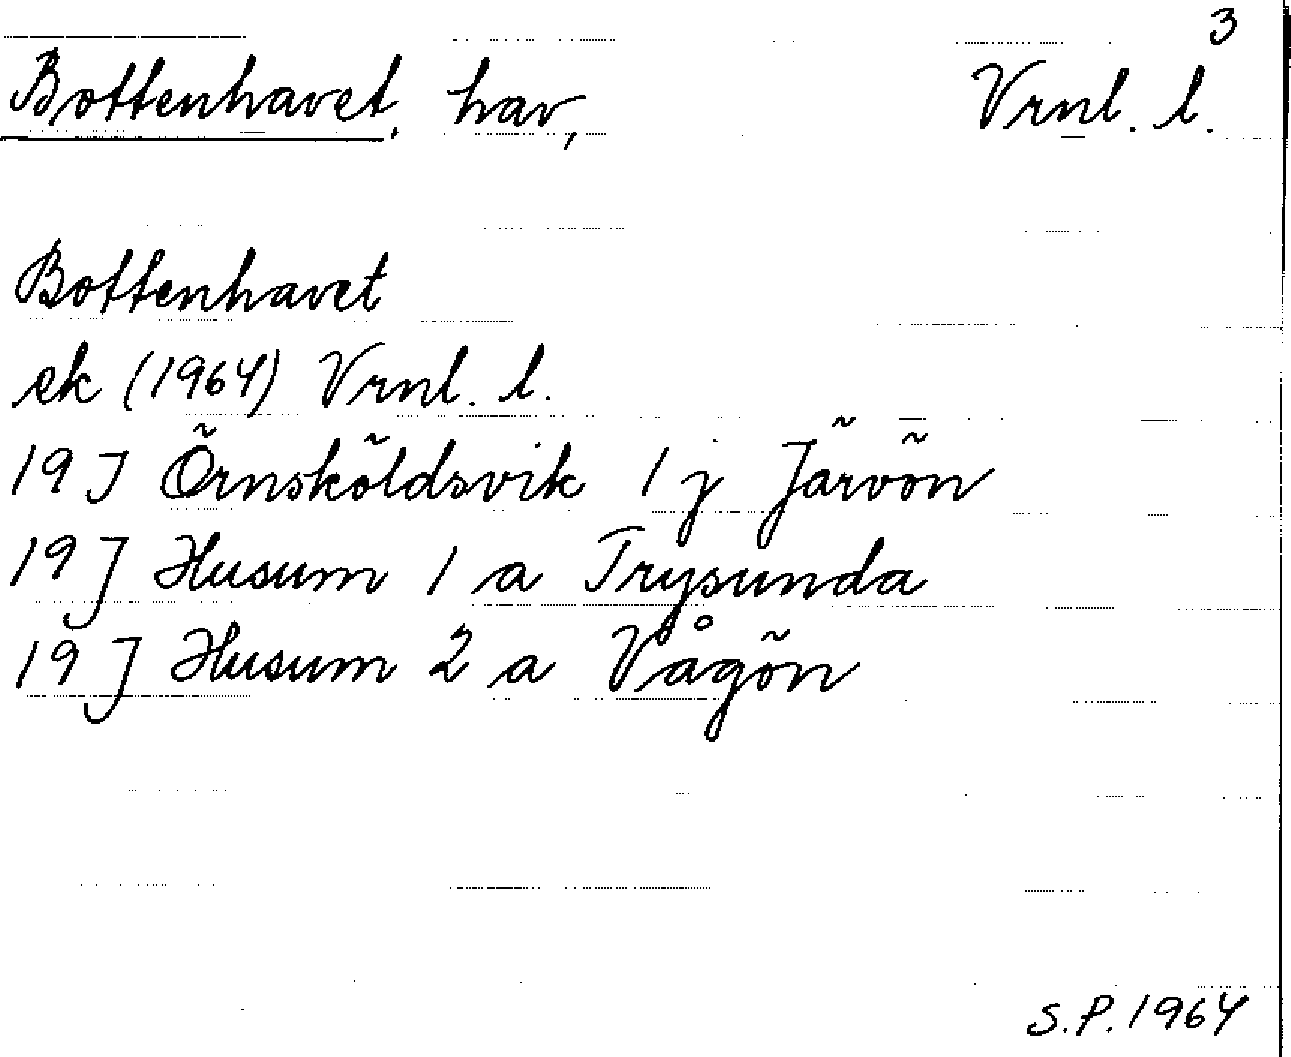 3
Bottenhavet, hav, Vrnl. l.
Bottenhavet
ek (1964) Vrnl. l.
19 J Örnsköldsvik 1 j Järvön
19 J Husum 1 a Trysunda
19 J Husum 2 a Vågön
S.P. 1964